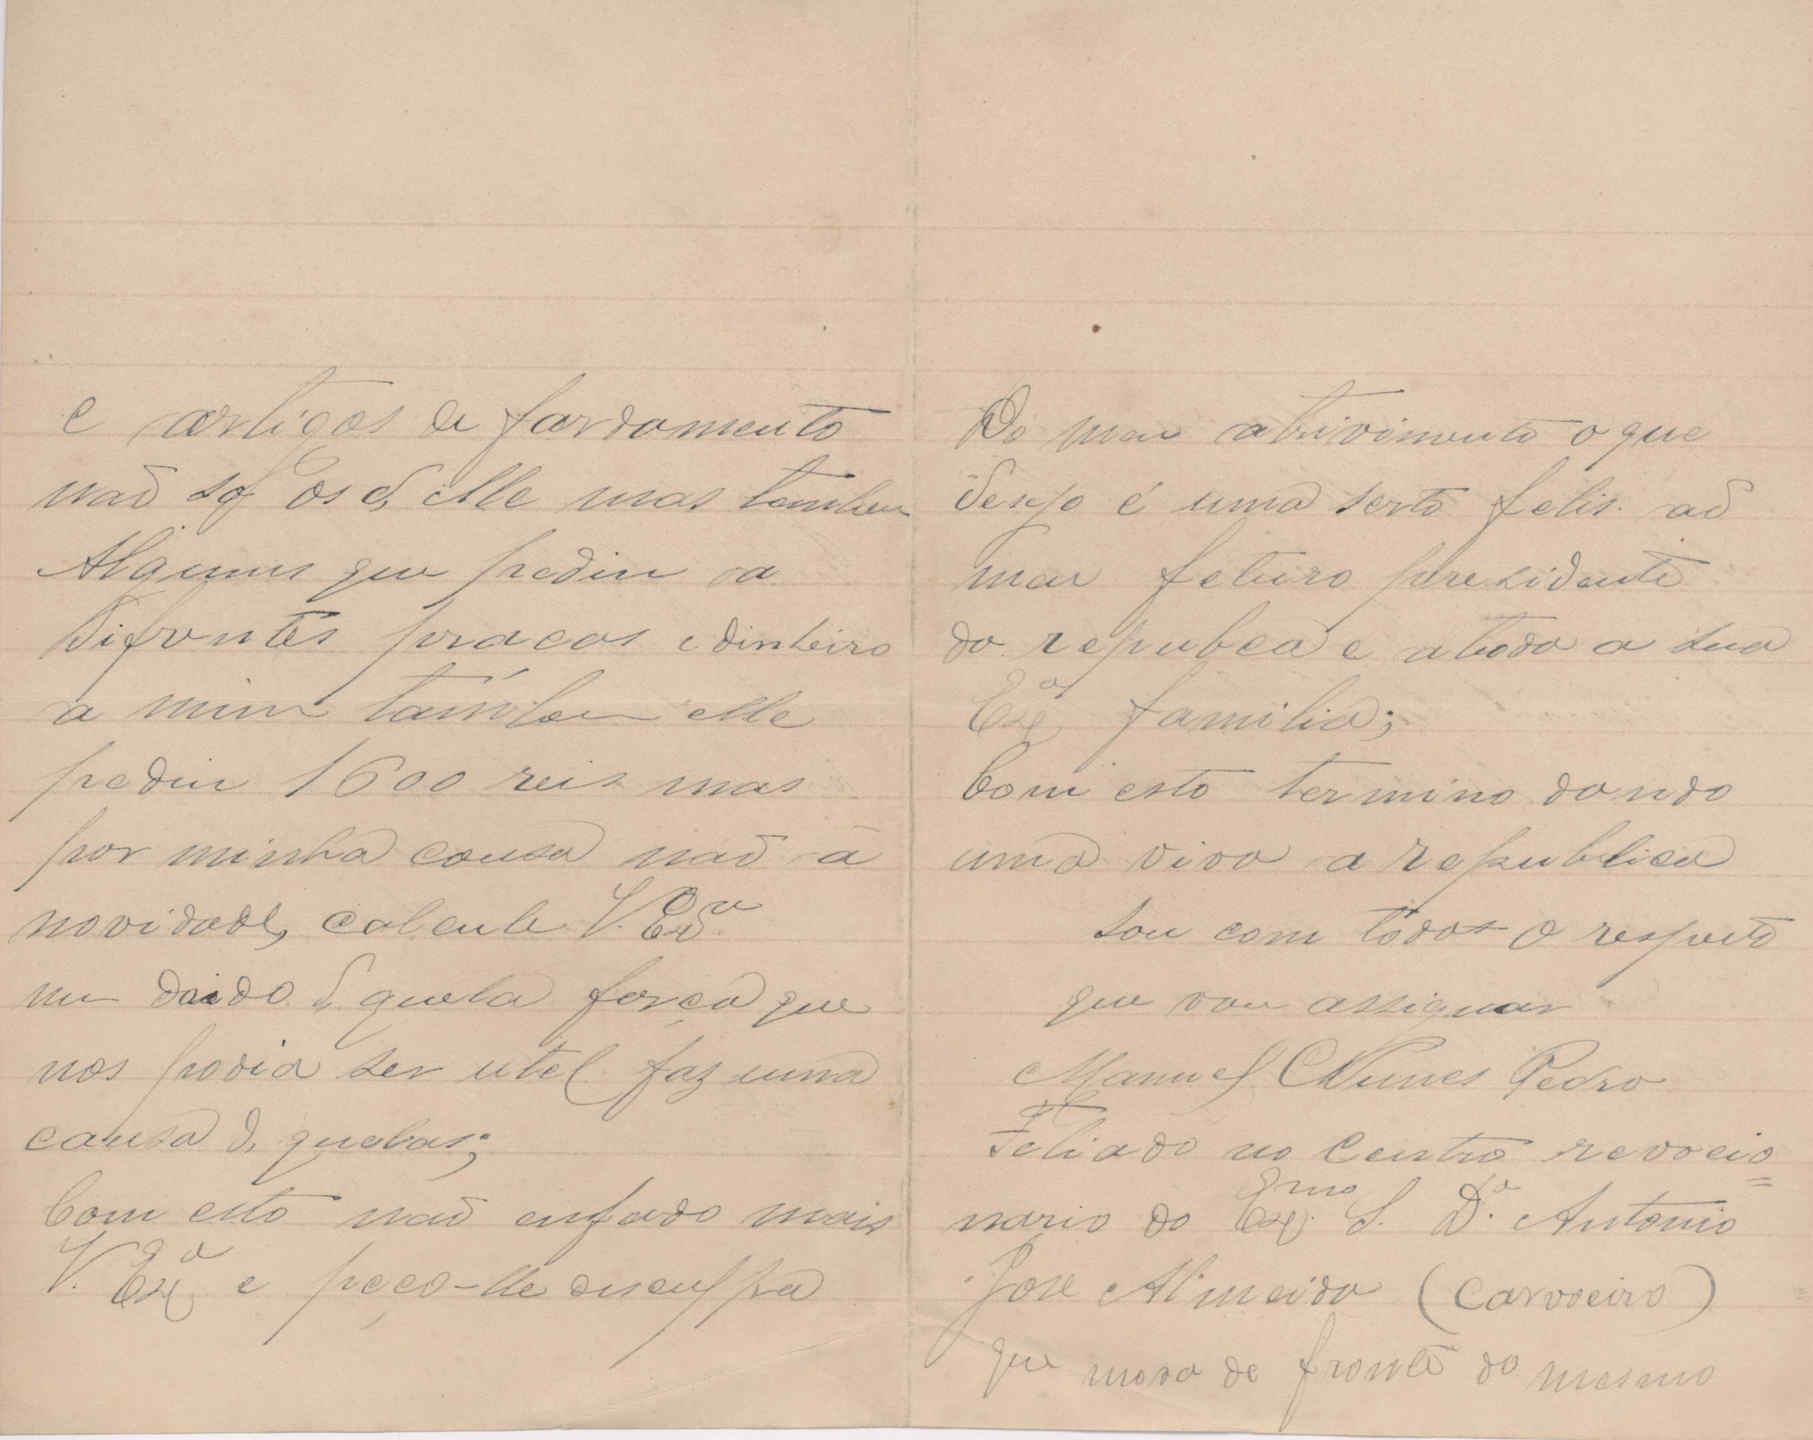 e artigos de fardamento
naõ só os d, elle mas tambem
Algumus que pediu a
difrontes pracas e dinheiro
a mim tamben elle
pediu 1600 reis mas
por minha cousa naõ á
novidade, calcule V. Exª
um daido d, quela força que
nos podia ser utel faz uma
causa d, quelas;
Com esto naõ enfado mais
V. Exª e peço-lhe desculpa
Do meu atrivimento o que
desejo é uma serto felis. aõ
meu feturo presidente
da repubca e a toda a sua
Exª familia;
Com esto termino dando
uma viva a republica
Sou com todos o respeito
que vou assignar
Manuel Nunes Pedro
Feliado no Centro revocio=
nario do Exmo S. Dº. Antonio
Jose Almeida (Carvoeiro)
que mora de fronte do mesmo